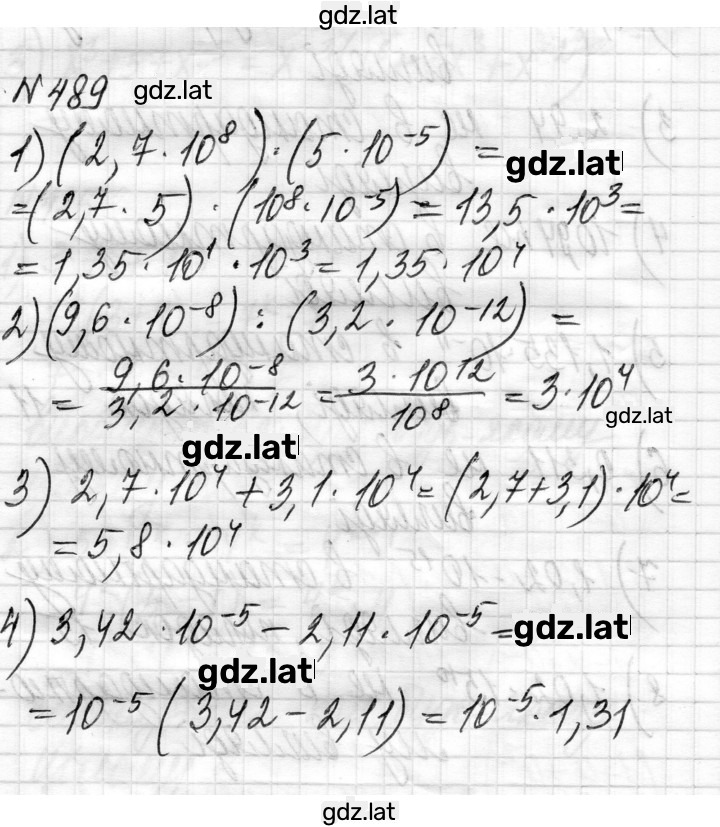 gdz.lat
№489 gdz.lat
1) (2,7·10⁸)·(5·10⁻⁵) = gdz.lat
=(2,7·5)·(10⁸·10⁻⁵) = 13,5·10³=
= 1,35·10¹·10³ = 1,35·10⁴
2) (9,6·10⁻⁸) : (3,2·10⁻¹²) =
= 9,6·10⁻⁸/3,2·10⁻¹² = 3·10¹²/10⁸ = 3·10⁴
gdz.lat
gdz.lat
3) 2,7·10⁴+3,1·10⁴=(2,7+3,1)·10⁴=
=5,8·10⁴
4) 3,42·10⁻⁵ – 2,11·10⁻⁵= gdz.lat
gdz.lat
=10⁻⁵(3,42–2,11)=10⁻⁵·1,31
gdz.lat